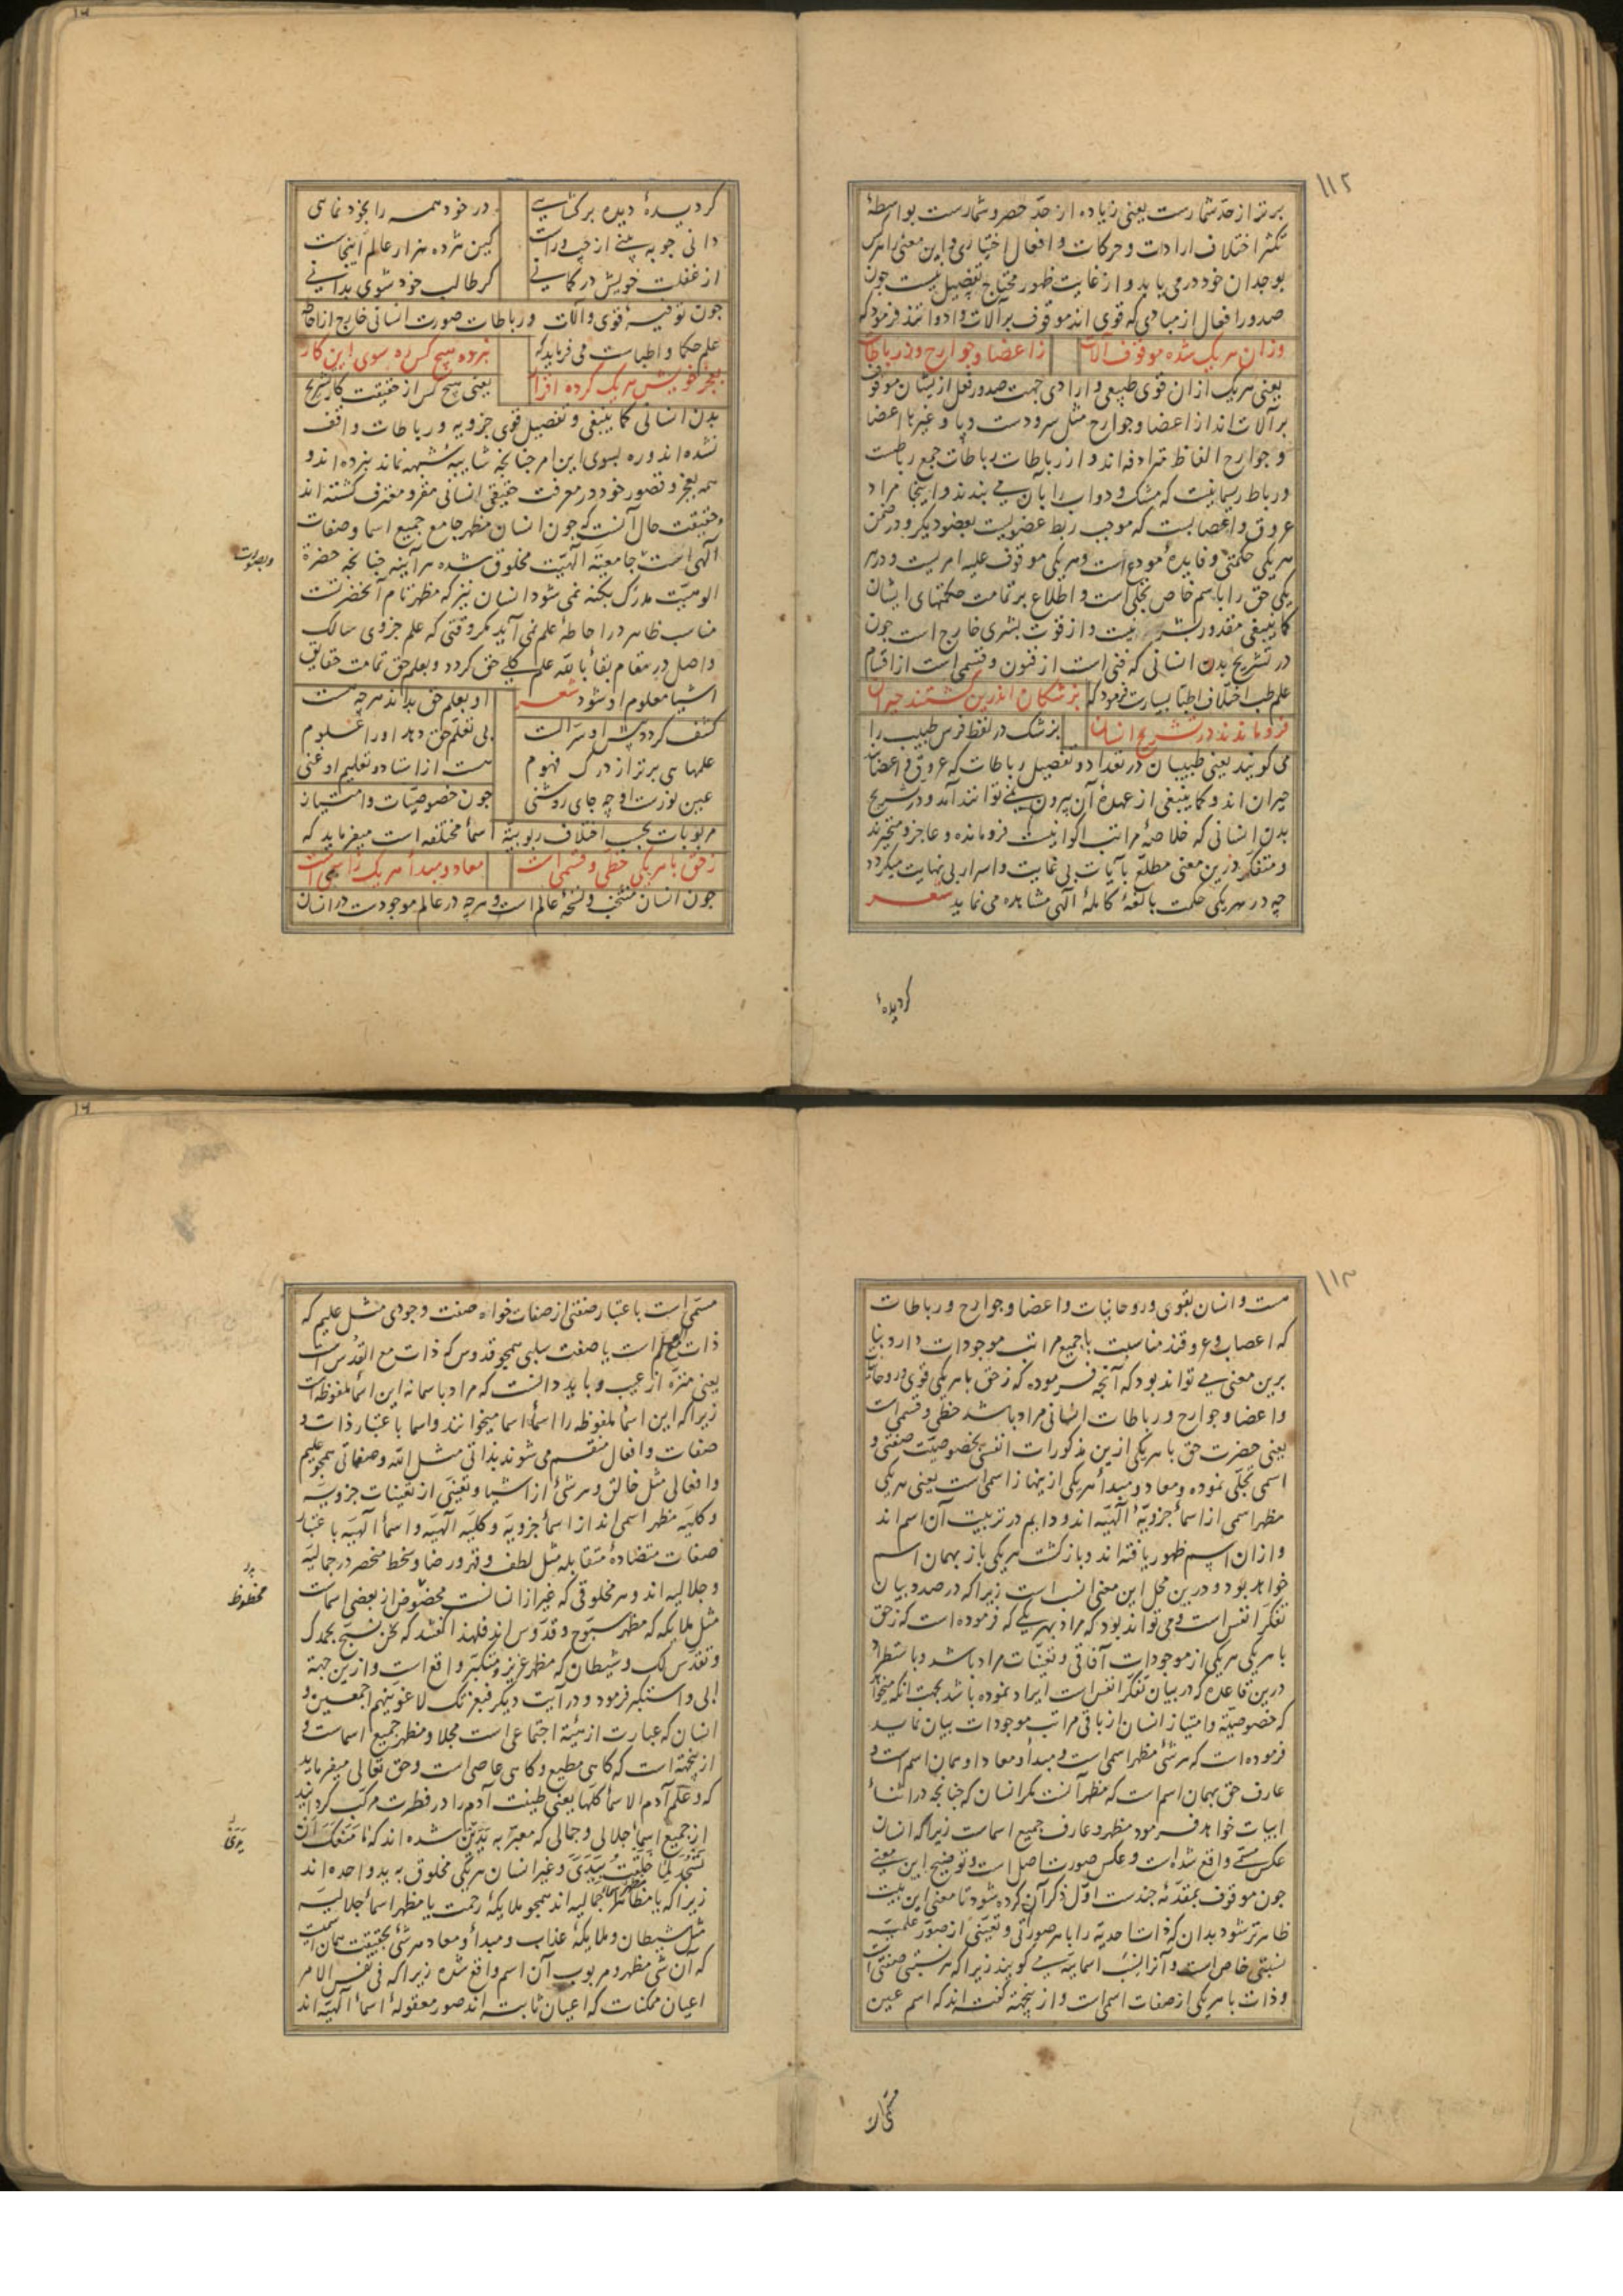 ۱۱۲
برتر از حد شمارست یعنی زیاده از حد حصر و شمارست بواسطهٔ
تکثر اختلاف ارادات و حرکات و افعال اختیاری و این معنی را هرکس
بوجدان خود درمی یابد و از غایت ظهور محتاج بتفصیل نیست چون
صدور افعال از مبادی که قوی اند موقوف بر آلات و ادواتند فرمود که
وزان هر یک شده موقوف آلات ز اعضا و جوارح وز رباطات
یعنی هر یک ازان قوی طبیعی و ارادی جهت صدور فعل ازیشان موقوف
بر آلات اند از اعضا و جوارح مثل سر و دست و پا و غیرها اعضا
و جوارح الفاظ مترادفه اند و از رباطات رباطات جمع رباطست
و رباط ریسمانیست که مشک و دواب را بآن می بندند و اینجا مراد
عروق و اعصابست که موجب ربط عضویست بعضو دیکر و در ضمن
هر یکی حکمتی و فایدهٔ مودع است و هر یکی موقوف علیه امریست و در هر
یکی حق را باسم خاص تجلی است و اطلاع بر تمامت حکمتهای ایشان
کما ینبغی مقدور بشر نیست و از قوت بشری خارج است چون
در تشریح بدن انسانی که فنی است از فنون و قسمی است از اقسام
علم طب اختلاف اطبا بسیارست فرمود که پزشکان اندرین کشتند حیران
فرو ماندند در تشریح انسان پزشک در لفظ فرس طبیب را
می کویند یعنی طبیبان در تعداد و تفصیل رباطات که عروق و اعضاست
حیران اند و کما ینبغی از عهدهٔ آن بیرون نمی توانند آمد و در تشریح
بدن انسانی که خلاصهٔ مراتب اکوانیست فرو مانده و عاجز و متحیرند
و متفکر درین معنی مطلع بآیات بی غایت و اسرار بی نهایت میکردد
چه در هر یکی حکمت بالغهٔ کاملهٔ الهی مشاهده می نماید شعر
کردیدهٔ
کردیدهٔ دیده برکشایی در خود همه را بخود نمایی
دانی چو به بینی از چپ و راست کین هژده هزار عالم اینجاست
از غفلت خویش در کمانی کر طالب خود شوی بدانی
چون توفیهٔ قوی و آلات و رباطات صورت انسانی خارج از احاطهٔ
علم حکما و اطباست می فرماید که نبرده هیچ کس ره سوی این کار
بعجز خویش هر یک کرده اقرار یعنی هیچ کس از حقیقت کار تشریح
بدن انسانی کما ینبغی و تفصیل قوی جزویه و رباطات واقف
نشده اند و ره بسوی این امر چنانچه شایبهٔ شبهه نماند نبرده اند و
همه بعجز و قصور خود در معرفت حقیقی انسانی مقر و معترف کشته اند
و حقیقت حال آنست که چون انسان مظهر جامع جمیع اسما و صفات
الهی است جامعیة الهیت مخلوق شده هر آینه چنانچه حضرة
وبصورت
الوهیت مدرک بکنه نمی شود انسان نیز که مظهر تام آنحضرتست
مناسب ظاهر در احاطهٔ علم نمی آید مکر وقتی که علم جزوی سالک
واصل در مقام بقأ بالله علم کلی حق کردد و بعلم حق تمامت حقایق
اشیا معلوم او شود شعر او بعلم حق بداند هرچه هست
کشف کردد پیش او سر الست بی تعلم حق دهد او را علوم
علمهای برتر از درک فهوم هست از استاد و تعلیم او غنی
عین نورست او چه جای روشنی چون خصوصیات و امتیاز
مربوبات بحسب اختلاف ربوبیة اسمأ مختلفه است میفرماید که
ز حق با هر یکی حظی و قسمی است معاد و مبدأ هر یک ز اسمی است
چون انسان منتخب و نسخهٔ عالم است و هرچه در عالم موجودست در انسان
۱۱۳
هست و انسان بقوی و روحانیات و اعضا و جوارح و رباطات
که اعصاب و عروقند مناسبت با جمیع مراتب موجودات دارد بنا
برین معنی می تواند بود که آنچه فرموده که ز حق با هر یکی قوی و روحانیات
و اعضا و جوارح و رباطات انسانی مراد باشد حظی و قسمی است
یعنی حضرت حق با هر یکی ازین مذکورات انفسی بخصوصیت صفتی و
اسمی تجلی نموده و معاد و مبدأ هر یکی ازینها ز اسمی است یعنی هر یکی
مظهر اسمی از اسمأ جزویهٔ الهیه اند و دایم در تربیت آن اسم اند
و ازان اسم ظهور یافته اند و بازکشت هر یکی باز بهمان اسم
خواهد بود و درین محل این معنی انسب است زیرا که در صدد بیان
تفکر انفس است و می تواند بود که مراد بهر یکی که فرموده است که ز حق
با هر یکی هر یکی از موجودات آفاقی و تعینات مراد باشد و باستطراد
درین قاعده که در بیان تفکر انفس است ایراد نموده باشد بجهت آنکه میخواهد
که خصوصیة و امتیاز انسان از باقی مراتب موجودات بیان نماید
فرموده است که هر شئ مظهر اسمی است و مبدأ و معاد او همان اسم است و
عارف حق بهمان اسم است که مظهر آنست مکر انسان که چنانچه در اثنأ
ابیات خواهد فرمود مظهر و عارف جمیع اسماست زیرا که انسان
عکس مسمی واقع شده است و عکس صورت اصل است و توضیح این معنی
چون موقوف بمقدمهٔ چندست اول ذکر آن کرده شود تا معنی این بیت
ظاهرتر شود بدان که ذات احدیة را با هر صورتی و تعینی از صور علمیه
نسبتی خاص است و آنرا نسب اسمائیه می کویند زیرا که هر نسبتی صفتی است
و ذات با هر یکی از صفات اسمی است و ازینجهة کفته اند که اسم عین
مسمی است باعتبار صفتی از صفات خواه صفت وجودی مثل علیم که
ذات مع العلم است یا صفت سلبی همچو قدوس که ذات مع القدس است
یعنی منزه از عیب و باید دانست که مراد باسما نه این اسمأ ملفوظه است
زیرا که این اسمأ ملفوظه را اسمأ اسما میخوانند و اسما باعتبار ذات و
صفات و افعال منقسم می شوند بذاتی مثل الله و صفاتی همچو علیم
و افعالی مثل خالق و هر شئ از اشیا و تعینی از تعینات جزویه
و کلیه مظهر اسمی اند از اسمأ جزویه و کلیه الهیه و اسمأ الهیه باعتبار
صفات متضاده متقابله مثل لطف و قهر و رضا و سخط منحصر در جمالیه
و جلالیه اند و هر مخلوقی که غیر از انسانست مخصوص از بعضی اسماست
محظوظ
مثل ملایکه که مظهر سبوح و قدوس اند فلهذا کفتند که نحن نسبح بحمدک
و نقدس لک و شیطان که مظهر عزیز و متکبر واقع است و ازین جهة
ابی و استکبر فرمود و در آیت دیکر فبعزتک لاغوینهم اجمعین و
انسان که عبارت از هیئة اجتماعی است مجلا و مظهر جمیع اسماست و
ازینجهة است که کاهی مطیع و کاهی عاصی است و حق تعالی میفرماید
که و علم آدم الاسمأ کلها یعنی طینت آدم را در فطرت مرکب کردانید
از جمیع اسمأ جلالی و جمالی که معبر به یدین شده اند که ما منعک ان
تسجد لما خلقت بیدی و غیر انسان هر یکی مخلوق به ید واحده اند
زیرا که یا مظاهر اسمأ جمالیه اند همچو ملایکهٔ رحمت یا مظهر اسمأ جلالیه
مثل شیطان و ملایکهٔ عذاب و مبدأ و معاد هر شئ بحقیقت همان اسمست
که آن شئ مظهر و مربوب آن اسم واقع شده زیرا که فی نفس الامر
اعیان ممکنات که اعیان ثابته اند صور معقولهٔ اسمأ الهیه اند